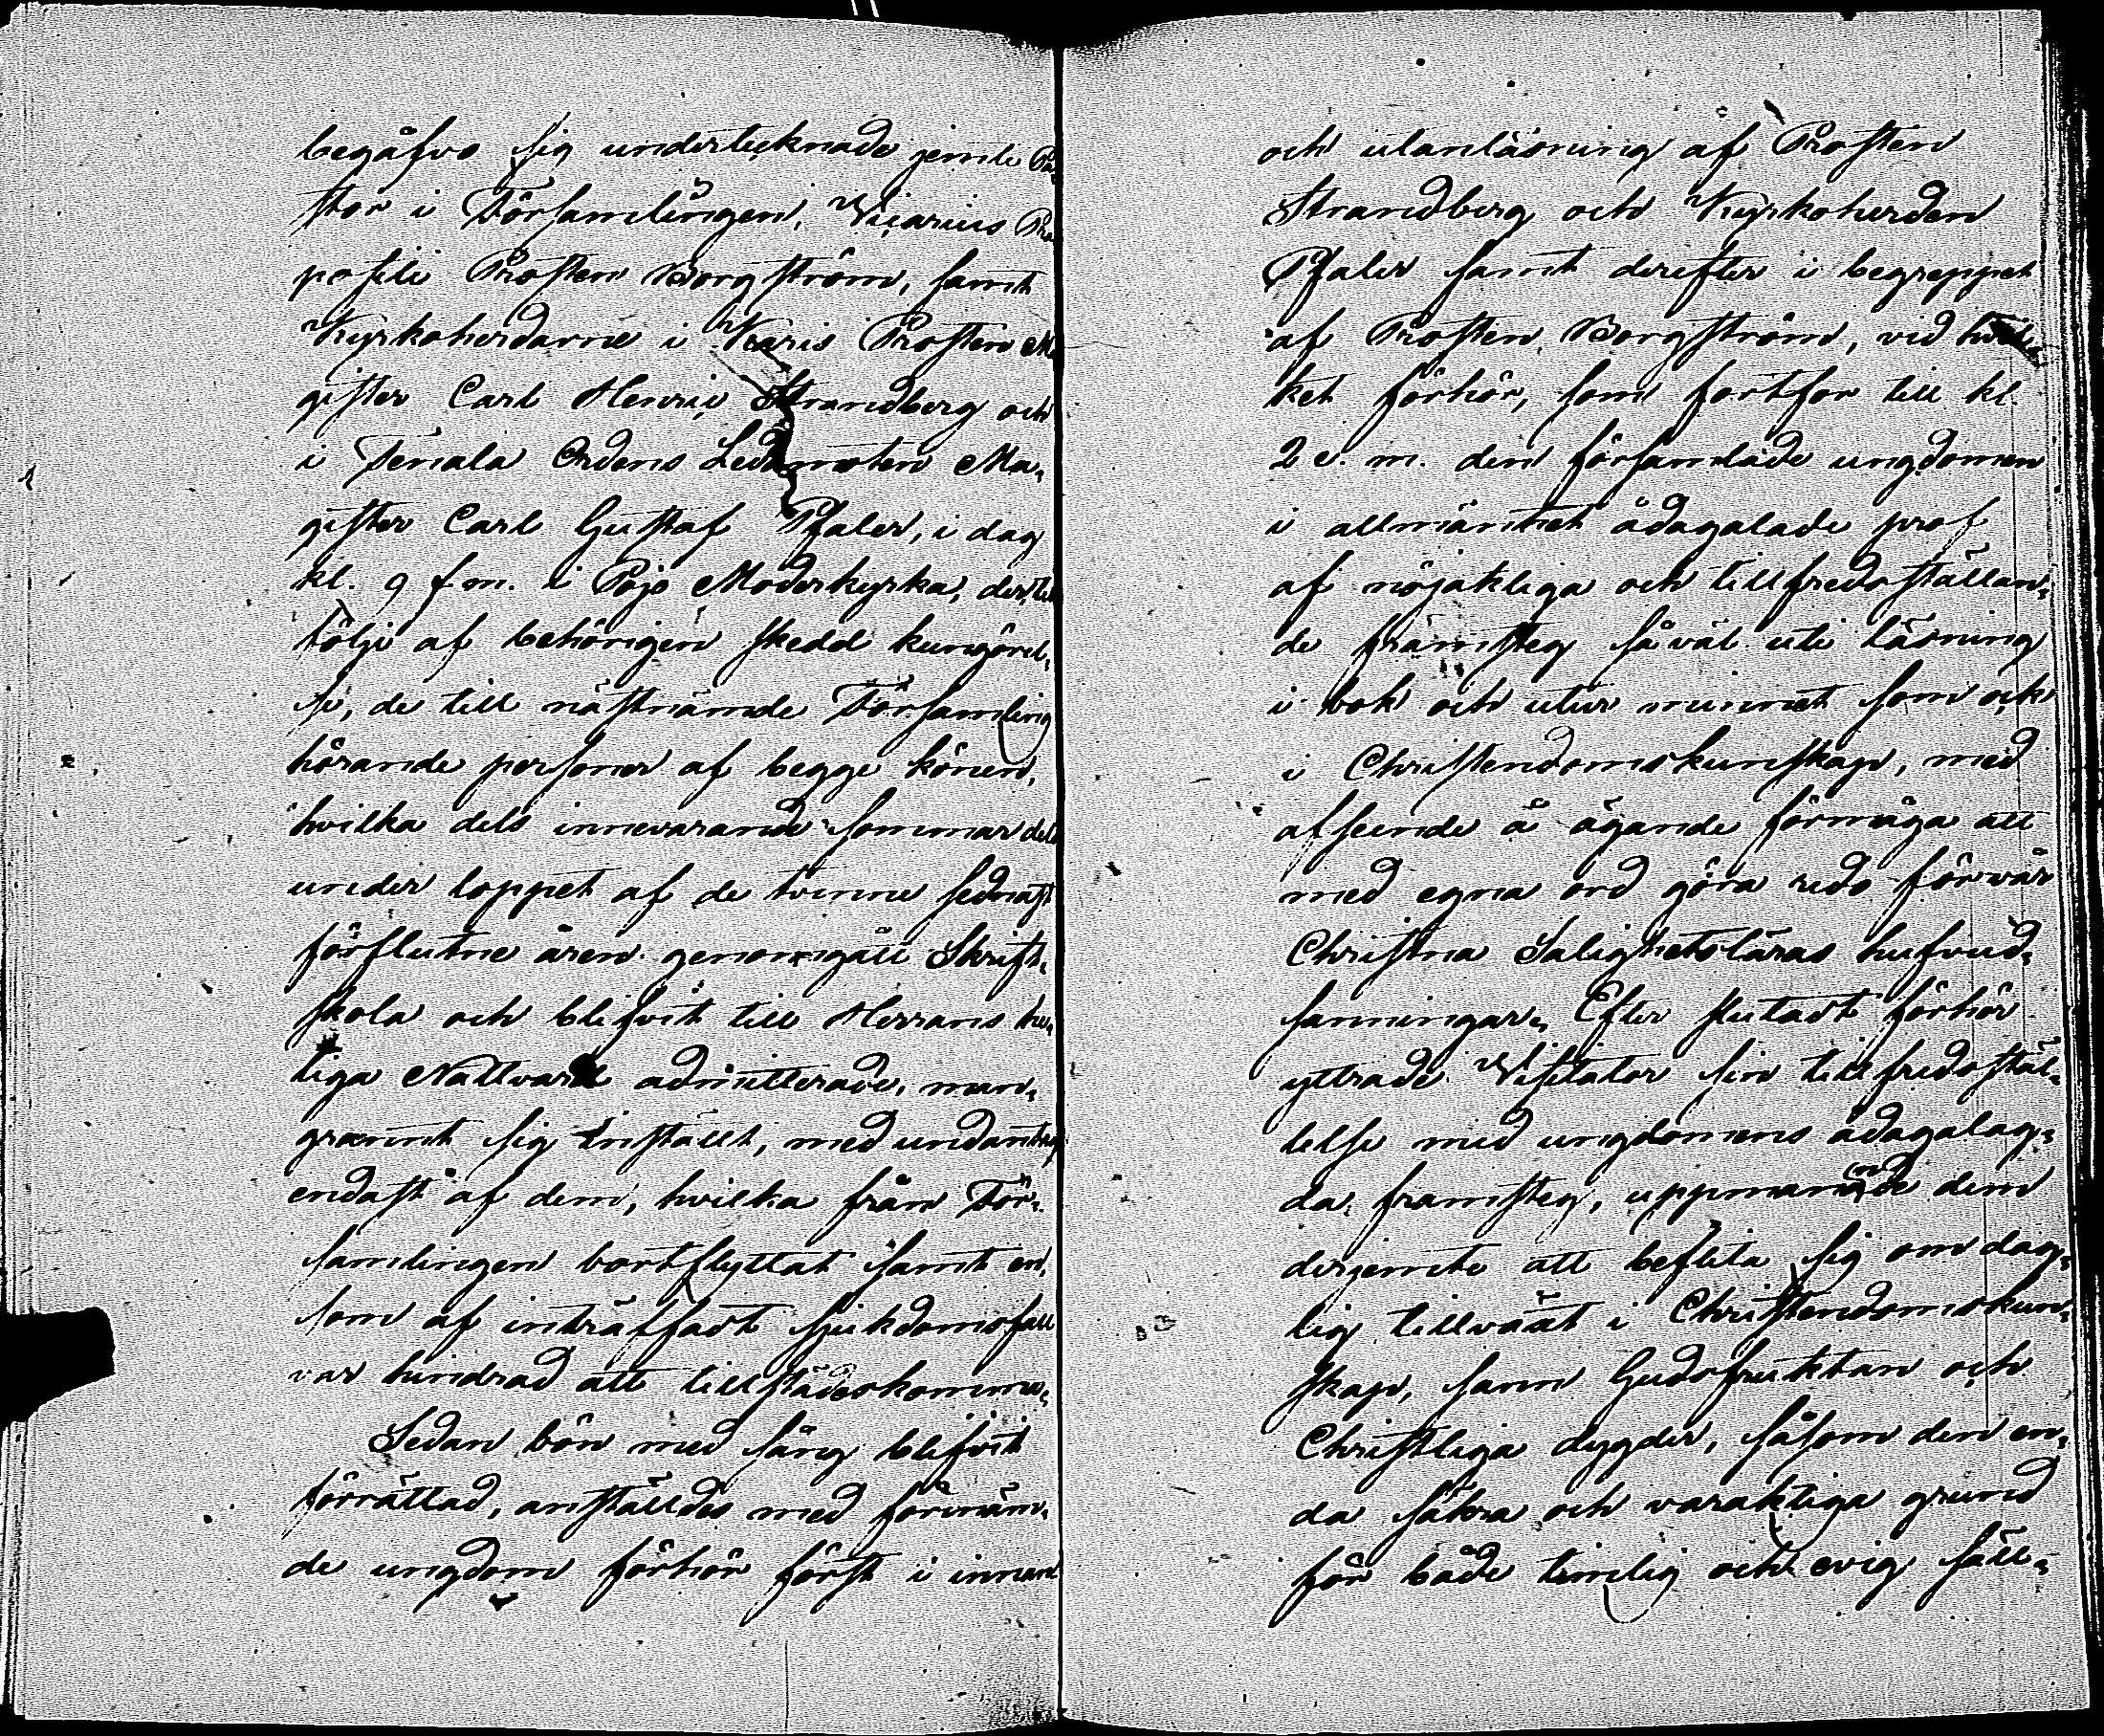 begåfvo sig undertecknade jemte Pa,
stor i Församlingen, Vicarius Præ
positi Prosten Borgström, samt
Kyrkoherdarne i Karis Prosten Ma
gister Carl Henric Strandberg och
i Tenala Ordens Ledamoten Ma,
gister Carl Gustaf Pfaler, i dag
kl. 9 f.m. i Pojo Moderkyrka, der, till
följe af behörigen skedd kungörel,
se, de till nästnämde Församling
hörande personer af begge könen,
hvilka dels innevarande sommar dels
under loppet af de tvenne sednast
förflutne åren genomgått Skrift,
skola och blifvit till Herrans he,
liga Nattvard admitterade, man,
grannt sig inställt, med undantag
endast af dem, hvilka från För,
samlingen bortflyttat samt en,
som af inträffadt sjukdomsfall
var hindrad att tillstädeskomma,
Sedan bön med sång blifvit
förrättad, anställdes med förenäm,
de ungdom förhör först i innan
och utanläsning af Prosten
Strandberg och Kyrkoherden
Pfaler samt derefter i begreppet
af Prosten Borgström, vid hvil,
ket förhör, som fortfor till kl.
2 e. m. den församlade ungdomen
i allmänhet ådagalade prof
af nöjaktliga och tillfredsställan,
de framsteg såväl uti läsning
i bok och utur minnet som ock
i Christendomskunskap, med
afseende å ägande förmåga att
med egna ord göra redo för vår
Christna Salighetsläras hufvud,
sanningar. Efter slutadt förhör
yttrade Visitator sin tillfredsstäl,
lelse med ungdomens ådagalag,
da framsteg, uppmanande dem
derjemte att beflita sig om dag,
lig tillväxt i Christendomskun,
skap, sann Gudsfruktan och
Christliga dygder, såsom den en,
da säkra och varaktiga grund
för både timlig och evig säll,